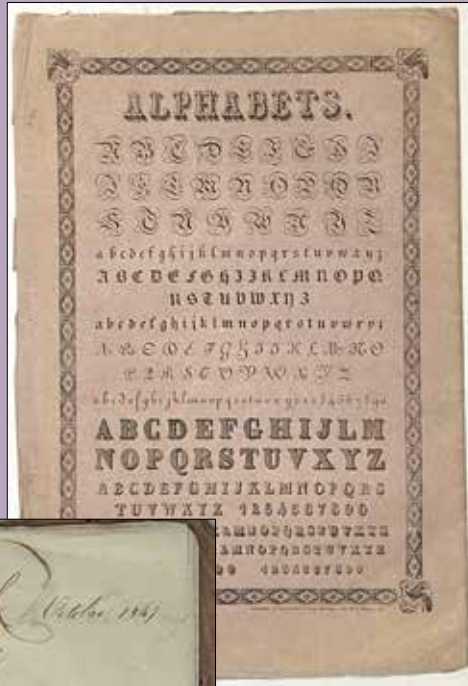 ALPHABETS.
A B C D E F G H I
J K L M N O P Q R
S T U V W X Y Z
a b c d e f g h i j k l m n o p q r s t u v w x y z
A B C D E F G H I J K L M N O P Q
R S T U V W X Y Z
a b c d e f g h i j k l m n o p q r s t u v w x y z
A B C D E F G H I J K L M N O
P Q R S T U V W X Y Z
ABCDEFGHIJLM
NOPQRSTUVXYZ
ABCDEFGHIJKLMNOPQRS
TUVWXYZ 1234567890
LMNOPQRSTUVXYZ
LMNOPQRSTUVXYZ
1234567890
Octobre 1847